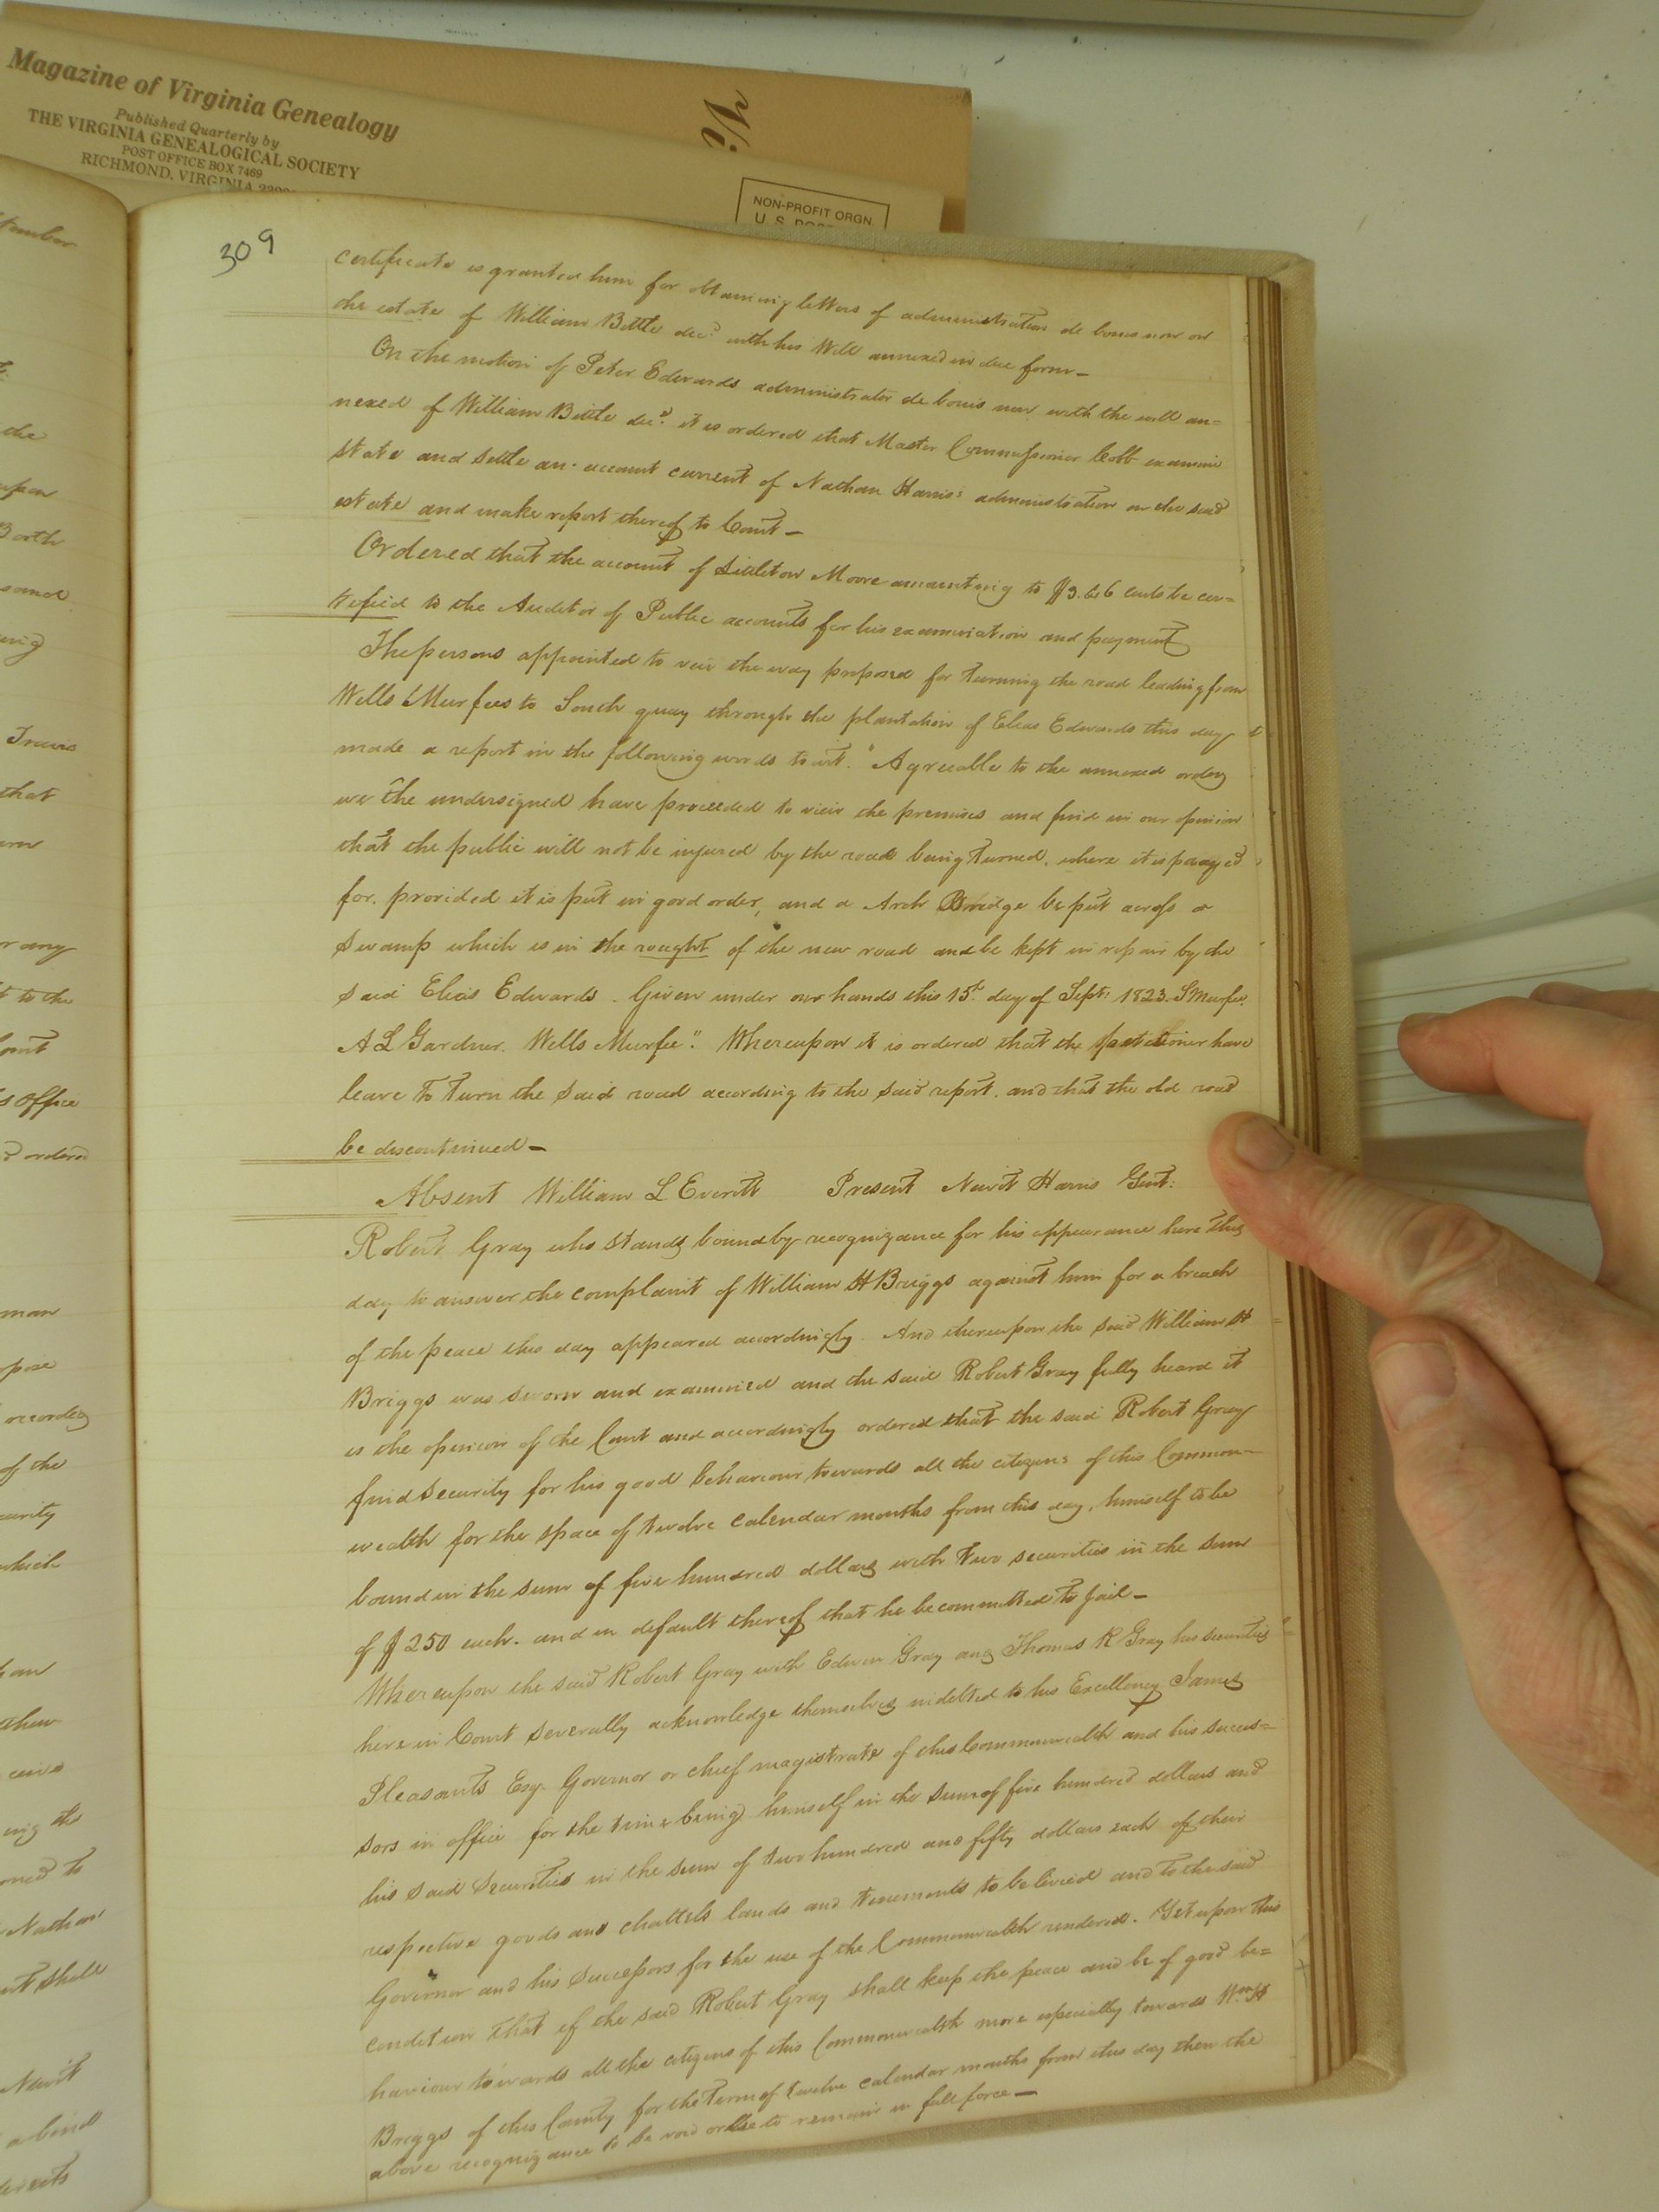 Magazine of Virginia Genealogy
Published Quarterly by
THE VIRGINIA GENEALOGICAL SOCIETY
POST OFFICE BOX 7469
RICHMOND, VIRGINIA
NON-PROFIT ORGN.
U. S. POS
309
certificate is granted him for obtaining letters of administration de bonis non on
the estate of William Bittle decd. with his Will annexed in due form—
On the motion of Peter Edwards administrator de bonis non with the will an=
nexed of William Bittle decd. it is ordered that Master Commissioner Cobb examine
state and settle an account current of Nathan Harris's administration on the said
estate and make report thereof to Court—
Ordered that the account of Littleton Moore amounting to $3.66 cents be cer=
tified to the Auditor of Public accounts for his examination and payment
The persons appointed to veiw the way proposed for turning the road leading from
Wells Murfees to South quay through the plantation of Elias Edwards this day
made a report in the following words towit. "Agreeable to the annexed order
we the undersigned have proceeded to view the premises and find in our opinion
that the public will not be injured by the road being turned, where it is prayed
for. provided it is put in good order, and a Arch Bridge be put across a
swamp which is in the rought of the new road and be kept in repair by the
said Elias Edwards. Given under our hands this 15t. day of Sept: 1823. S Murfee.
A L Gardner. Wells Murfee". Whereupon it is ordered that the petitioner have
leave to turn the said road according to the said report. and that the old road
be discontinued—
Absent William L Everitt Present Newit Harris Gent:
Robert Gray who stands bound by recognizance for his appearance here this
day to answer the complaint of William H Briggs against him for a breach
of the peace this day appeared accordingly. And thereupon the said William H
Briggs was sworn and examined and the said Robert Gray fully heard it
is the opinion of the Court and accordingly ordered that the said Robert Gray
find security for his good behaviour towards all the citizens of this Common—
wealth for the space of twelve calendar months from this day, himself to be
bound in the sum of five hundred dollars with two securities in the sum
of $250 each. and in default thereof that he be committed to Jail—
Whereupon the said Robert Gray with Edwin Gray and Thomas R Gray his securities
here in Court severally acknowledge themselves indebted to his Excellency James
Pleasants Esqr. Governor or chief magistrate of this Commonwealth and his succes=
sors in office for the time being himself in the sum of five hundred dollars and
his said securities in the sum of two hundred and fifty dollars each of their
respective goods and chattels lands and tenements to be levied and to the said
Governor and his successors for the use of the Commonwealth rendered. Yet upon this
condition that if the said Robert Gray shall keep the peace and be of good be=
haviour towards all the citizens of this Commonwealth more especially towards Wm H
Briggs of this County for the term of twelve calendar months from this day then the
above recognizance to be void or else to remain in full force—